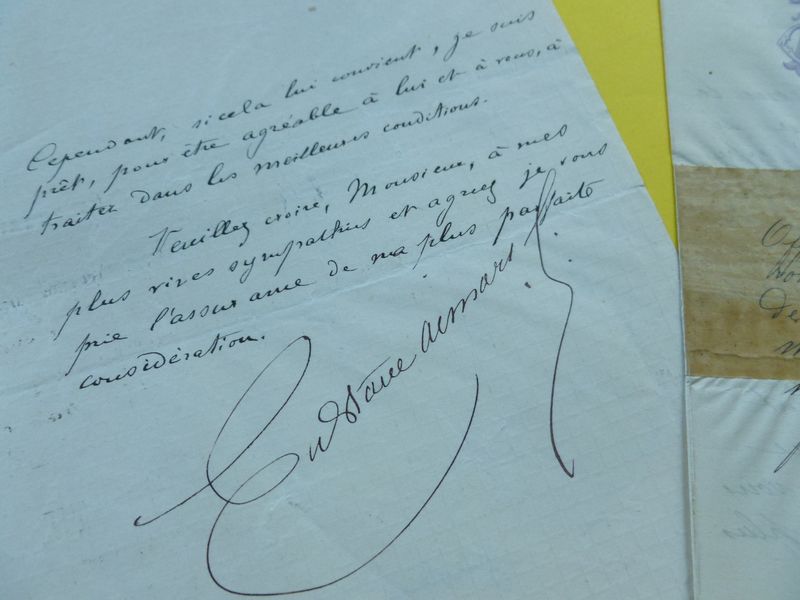 Cependant, si cela lui convient, je suis
prêt, pour être agréable à lui et à vous, à
traiter dans les meilleures conditions.
Veuillez croire, Monsieur, à mes
plus vives sympathies et agréez je vous
prie l'assurance de ma plus parfaite
considération.
Gustave Aimard
De